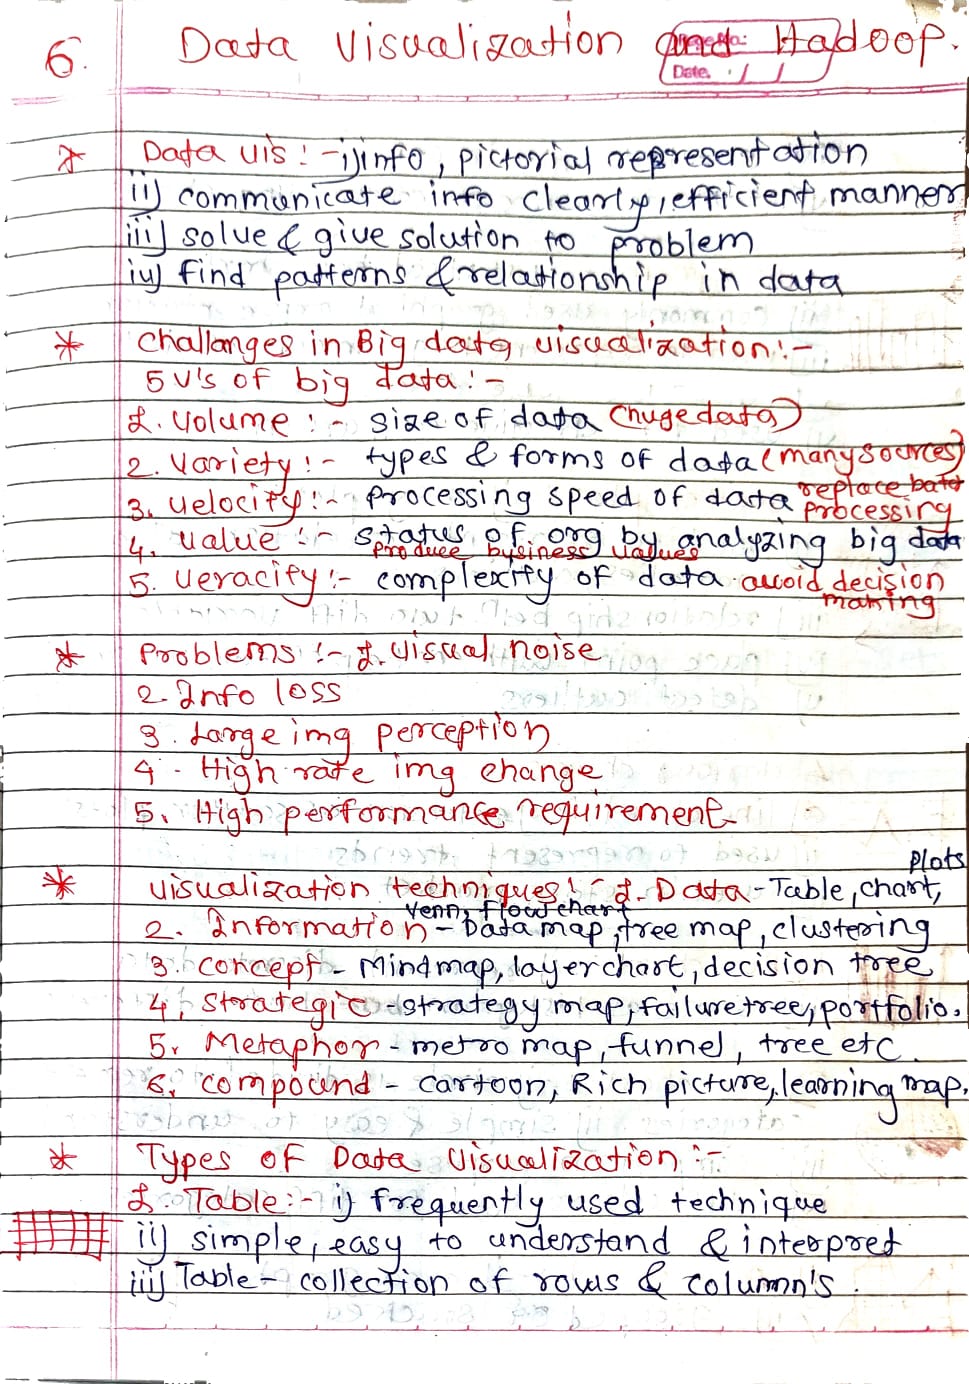 6. Data Visualization and Hadoop.
Page No:
Date. / /
* Data vis :- i) info, pictorial representation
ii) communicate info clearly, efficient manner
iii) solve & give solution to problem
iv) find patterns & relationship in data
* Challanges in Big data visualization :-
5 V's of big data :-
1. Volume :- size of data (huge data)
2. Variety :- types & forms of data (many sources)
3. Velocity :- processing speed of data replace batch
processing
4. Value :- status of org by analyzing big data
produce business values
5. Veracity :- complexity of data avoid decision
making
* Problems :- 1. Visual noise
2. Info loss
3. Large img perception
4. High rate img change
5. High performance requirement
plots
* Visualization techniques :- 1. Data - Table, chart,
venn, flow chart
2. Information - Data map, tree map, clustering
3. concept - Mindmap, layer chart, decision tree
4. Strategic - strategy map, failure tree, portfolio.
5. Metaphor - metro map, funnel, tree etc.
6. compound - cartoon, Rich picture, learning map.
* Types of Data Visualization :-
1. Table :- i) frequently used technique
ii) simple, easy to understand & interpret
iii) Table - collection of rows & column's.